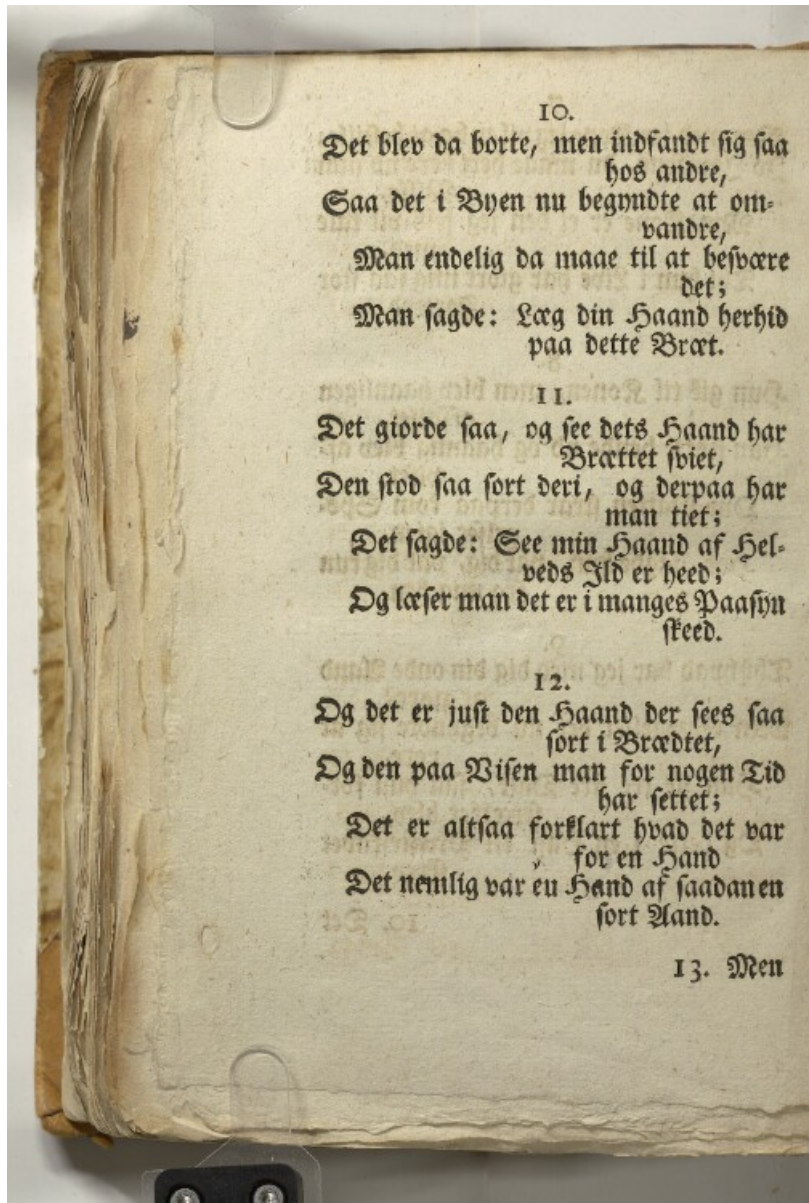 10.
Det blev da borte, men indfandt sig saa
hos andre,
Saa det i Byen nu begyndte at om-
vandre,
Man endelig da maae til at besvære
det;
Man sagde: Læg din Haand herhid
paa dette Bræt.
11.
Det giorde saa, og see dets Haand har
Brættet sviet,
Den stod saa sort deri, og derpaa har
man tiet;
Det sagde: See min Haand af Hel-
veds Ild er heed;
Og læser man det er i manges Paasyn
skeed.
12.
Og det er just den Haand der sees saa
sort i Brædtet,
Og den paa Visen man for nogen Tid
har settet;
Det er altsaa forklart hvad det var
for en Hand
Det nemlig var eu Hand af saadan en
sort Aand.
13. Men